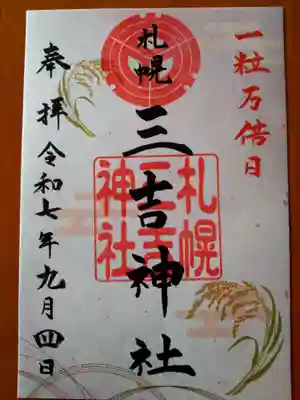 一粒万倍日
札幌
三吉神社
札幌
三吉
神社
奉拝 令和七年九月四日